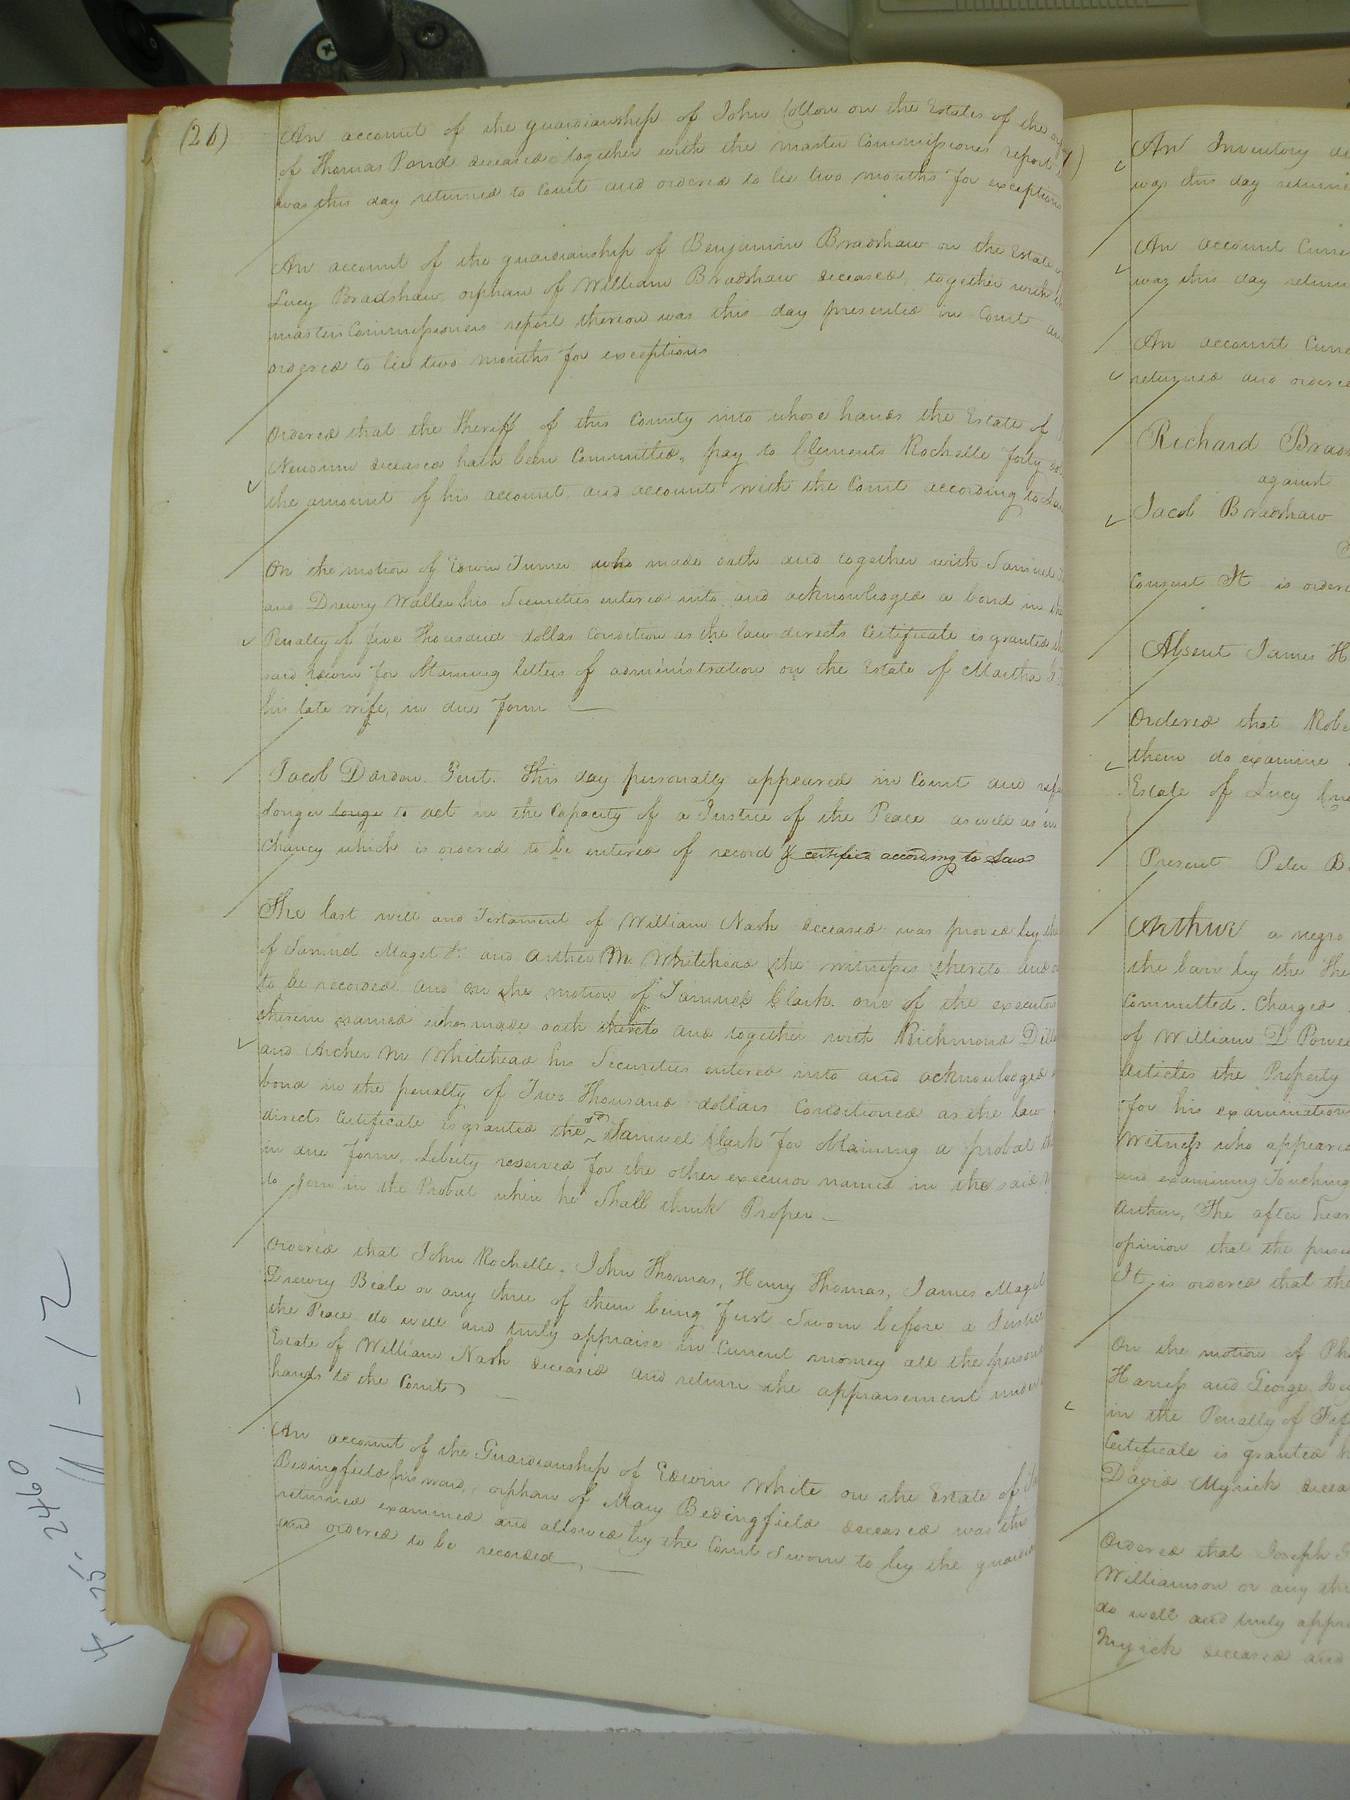 (26)
An account of the guardianship of John Cotton on the Estates of the
of Thomas Pond deceased together with the master Commissioners report
was this day returned to Court and ordered to lie two months for exceptions
An account of the guardianship of Benjamin Bradshaw on the Estate
Lucy Bradshaw, orphan of William Bradshaw deceased, together with
master Commissioners report thereon was this day presented in Court
ordered to lie two months for exceptions
Ordered that the Sheriff of this County into whose hands the Estate of
Newsum deceased hath been Committed, pay to Clements Rochelle forty
the amount of his account and account with the Court according to
On the motion of Edwin Turner who made oath and together with Samuel
and Drewry Waller his Securities entered into and acknowledged a bond in
Penalty of five thousand dollas Condition as the law directs Certificate is granted
said Edwin for obtaining letters of administration on the Estate of Martha
his late wife, in due form
Jacob Darden Gent. This day personally appeared in Court and
longer longe to act in the Capacity of a Justice of the Peace as well as in
Chancy which is ordered to be entered of record & certified according to Law
The last will and Testament of William Nash deceased was proved by the
of Samuel Maget and Archer M Whitehead the witnesses thereto and
to be recorded and on the motion of Samuel Clark one of the executors
therein named who made oath thereto and together with Richmond
and Archer M Whitehead his Securities entered into and acknowledged
bond in the penalty of Two Thousand dollars Conditioned as the law
directs Certificate is granted the sd Samuel Clark for obtaining a probat
in due form, Liberty reserved for the other executor named in the said
to join in the Probat when he shall think Proper
Ordered that John Rochelle, John Thomas, Henry Thomas, James Maget
Drewry Beale or any three of them being first Sworn before a Justice
the Peace do well and truly appraise in Current money all the
Estate of William Nash deceased and return the appraisement under
hands to the Court
An account of the Guardianship of Edwin White on the Estate of
Bedingfield his ward, orphan of Mary Bedingfield deceased was
returned examined and allowed by the Court Sworn to by the
and ordered to be recorded
An Inventory
was this day
An account
was this day
An account
returned and
Richard
against
Jacob Bradshaw
Consent It is
Absent James H
Ordered that
them do examine
Estate of Lucy
Present Peter
Arthur a negro
the barr by the
Committed. Charged
of William D
articles the Property
for his examination
Witness who appeared
and examining Touching
The after
opinion that the
It is ordered that the
On the motion of
Harriss and George
in the Penalty of
Certificate is granted
David Myrick
Ordered that Joseph
Williamson or any
do well and truly
Myrick deceased and